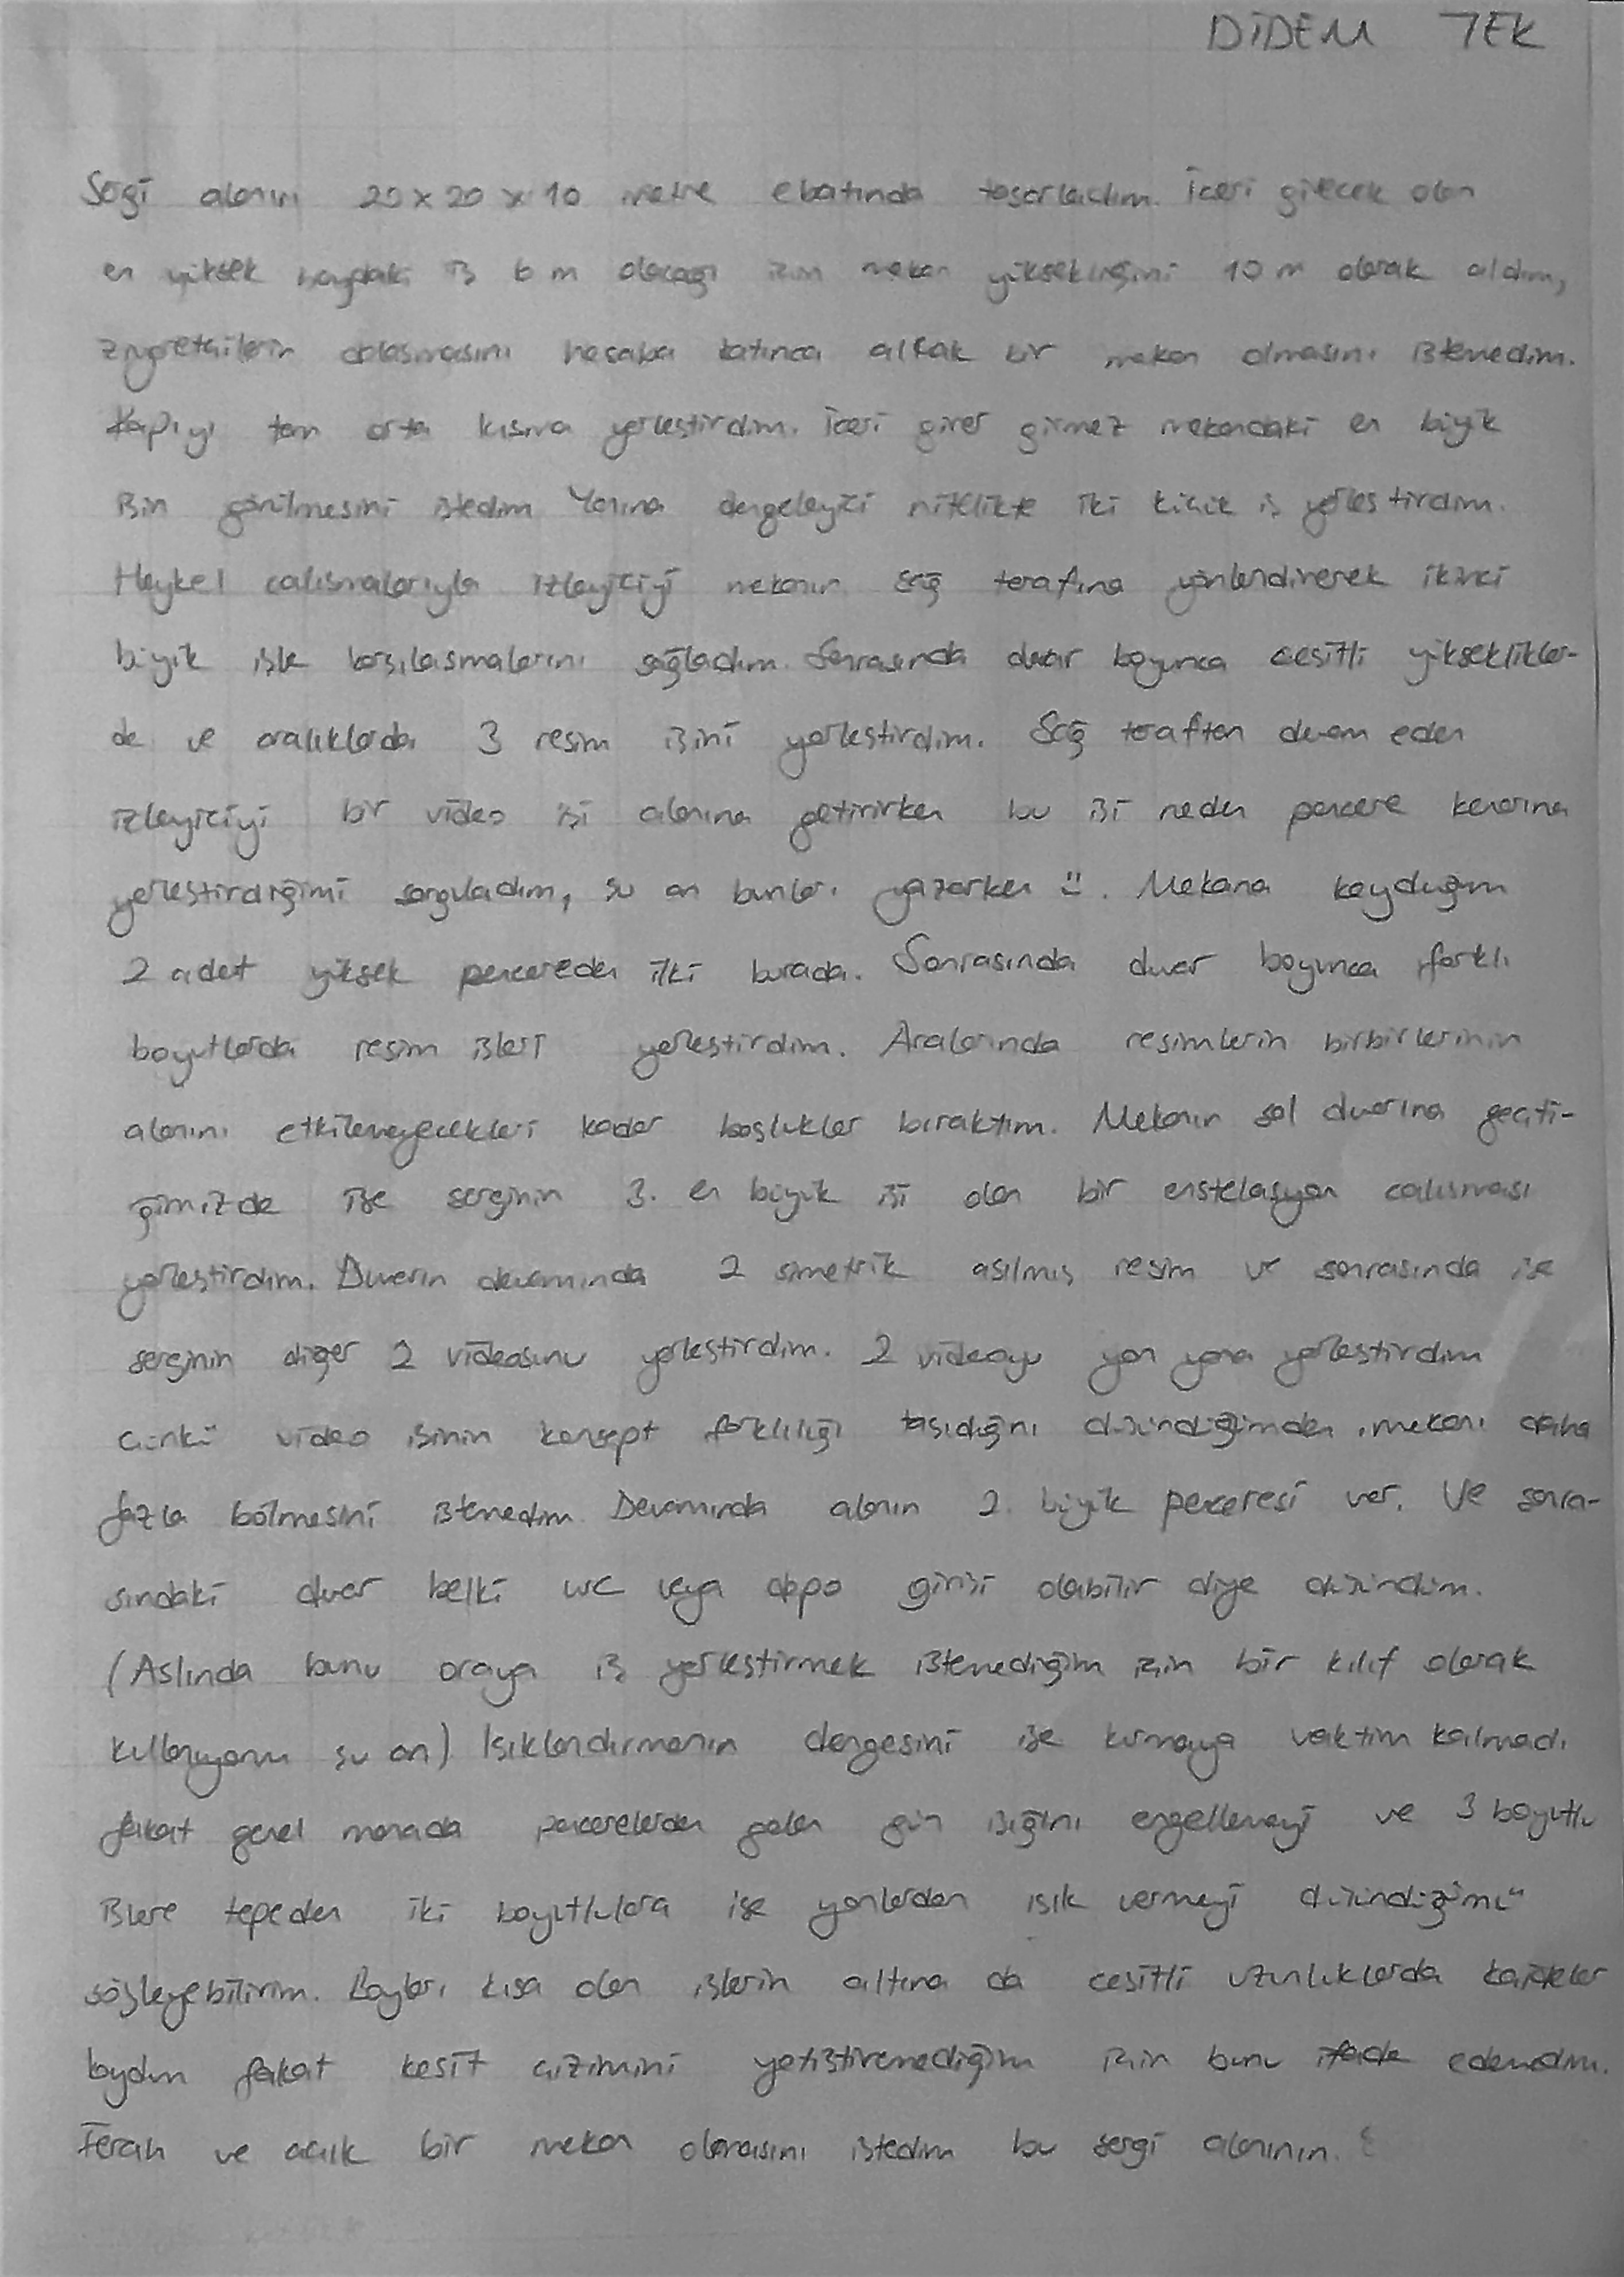 DİDEM TEK
Sergi alanını 20 x 20 x 10 metre ebatında tasarladım. İçeri girecek olan
en yüksek boydaki iş 6 m olacağı için mekan yüksekliğini 10 m olarak aldım,
ziyaretçilerin dolaşmasını hesaba katınca alçak bir mekan olmasını istemedim.
Kapıyı tam orta kısma yerleştirdim. İçeri girer girmez mekandaki en büyük
işin görülmesini istedim Yanına dengeleyici nitelikte iki küçük iş yerleştirdim.
Heykel çalışmalarıyla izleyiciyi mekanın sağ tarafına yönlendirerek ikinci
büyük işle karşılaşmalarını sağladım. Sonrasında duvar boyunca çeşitli yükseklikler-
de ve aralıklarda 3 resim işini yerleştirdim. Sağ taraftan devam eden
izleyiciyi bir video işi alanına getirirken bu işi neden pencere kenarına
yerleştirdiğimi sorguladım, şu an bunları yazarken Ü. Mekana koyduğum
2 adet yüksek pencereden ilki burada. Sonrasında duvar boyunca farklı
boyutlarda resim işleri yerleştirdim. Aralarında resimlerin birbirlerinin
alanını etkilemeyecekleri kadar boşluklar bıraktım. Mekanın sol duvarına geçti-
ğimizde ise serginin 3. en büyük işi olan bir enstelasyon çalışması
yerleştirdim. Duvarın devamında 2 simetrik asılmış resim ve sonrasında ise
serginin diğer 2 videosunu yerleştirdim. 2 videoyu yan yana yerleştirdim
çünkü video işinin konsept farklılığı taşıdığını düşündüğümden, mekanı daha
fazla bölmesini istemedim Devamında alanın 2. büyük penceresi var. Ve sonra-
sındaki duvar belki wc veya depo girişi olabilir diye düşündüm.
(Aslında bunu oraya iş yerleştirmek istemediğim için bir kılıf olarak
kullanıyorum şu an) Işıklandırmanın dengesini ise kurmaya vaktim kalmadı
fakat genel manada pencerelerden gelen gün ışığını engellemeyi ve 3 boyutlu
işlere tepeden iki boyutlulara ise yanlardan ışık vermeyi düşündüğümü
söyleyebilirim. Boyları kısa olan işlerin altına da çeşitli uzunluklarda kaideler
koydum fakat kesit çizimini yetiştiremediğim için bunu ifade edemedim.
Ferah ve açık bir mekan olmasını istedim bu sergi alanının.